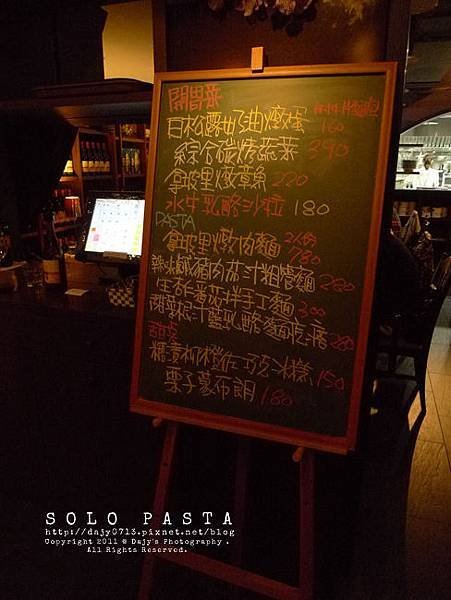 開胃菜
白松露奶油燉蛋 160
綜合碳烤蔬菜 290
拿坡里燉章魚 220
水牛乳酪沙拉 180
PASTA
拿坡里燉肉麵 2人份 780
辣味鹹豬肉茄汁粗管麵 280
生香番茄拌手工麵 300
菠菜起汁藍乳酪麵疙瘩 280
甜点
糖漬柳橙佐巧克冰糕 150
栗子蒙布朗 180
SOLO PASTA
http://dajy0713.pixnet.net/blog
Copyright 2011 @ Dajy's Photography .
All Rights Reserved.